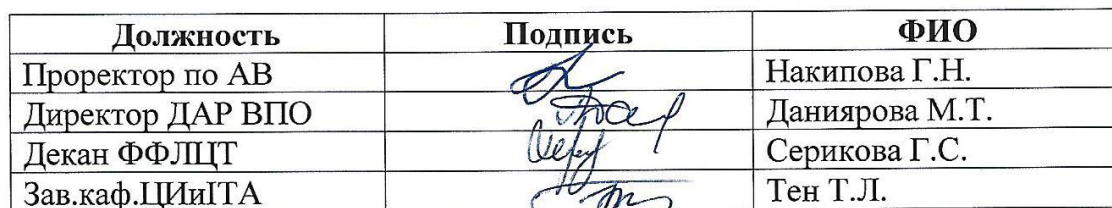 Должность Подпись ФИО
Проректор по АВ Накипова Г.Н.
Директор ДАР ВПО Даниярова М.Т.
Декан ФФЛЦТ Серикова Г.С.
Зав.каф.ЦИиІТА Тен Т.Л.